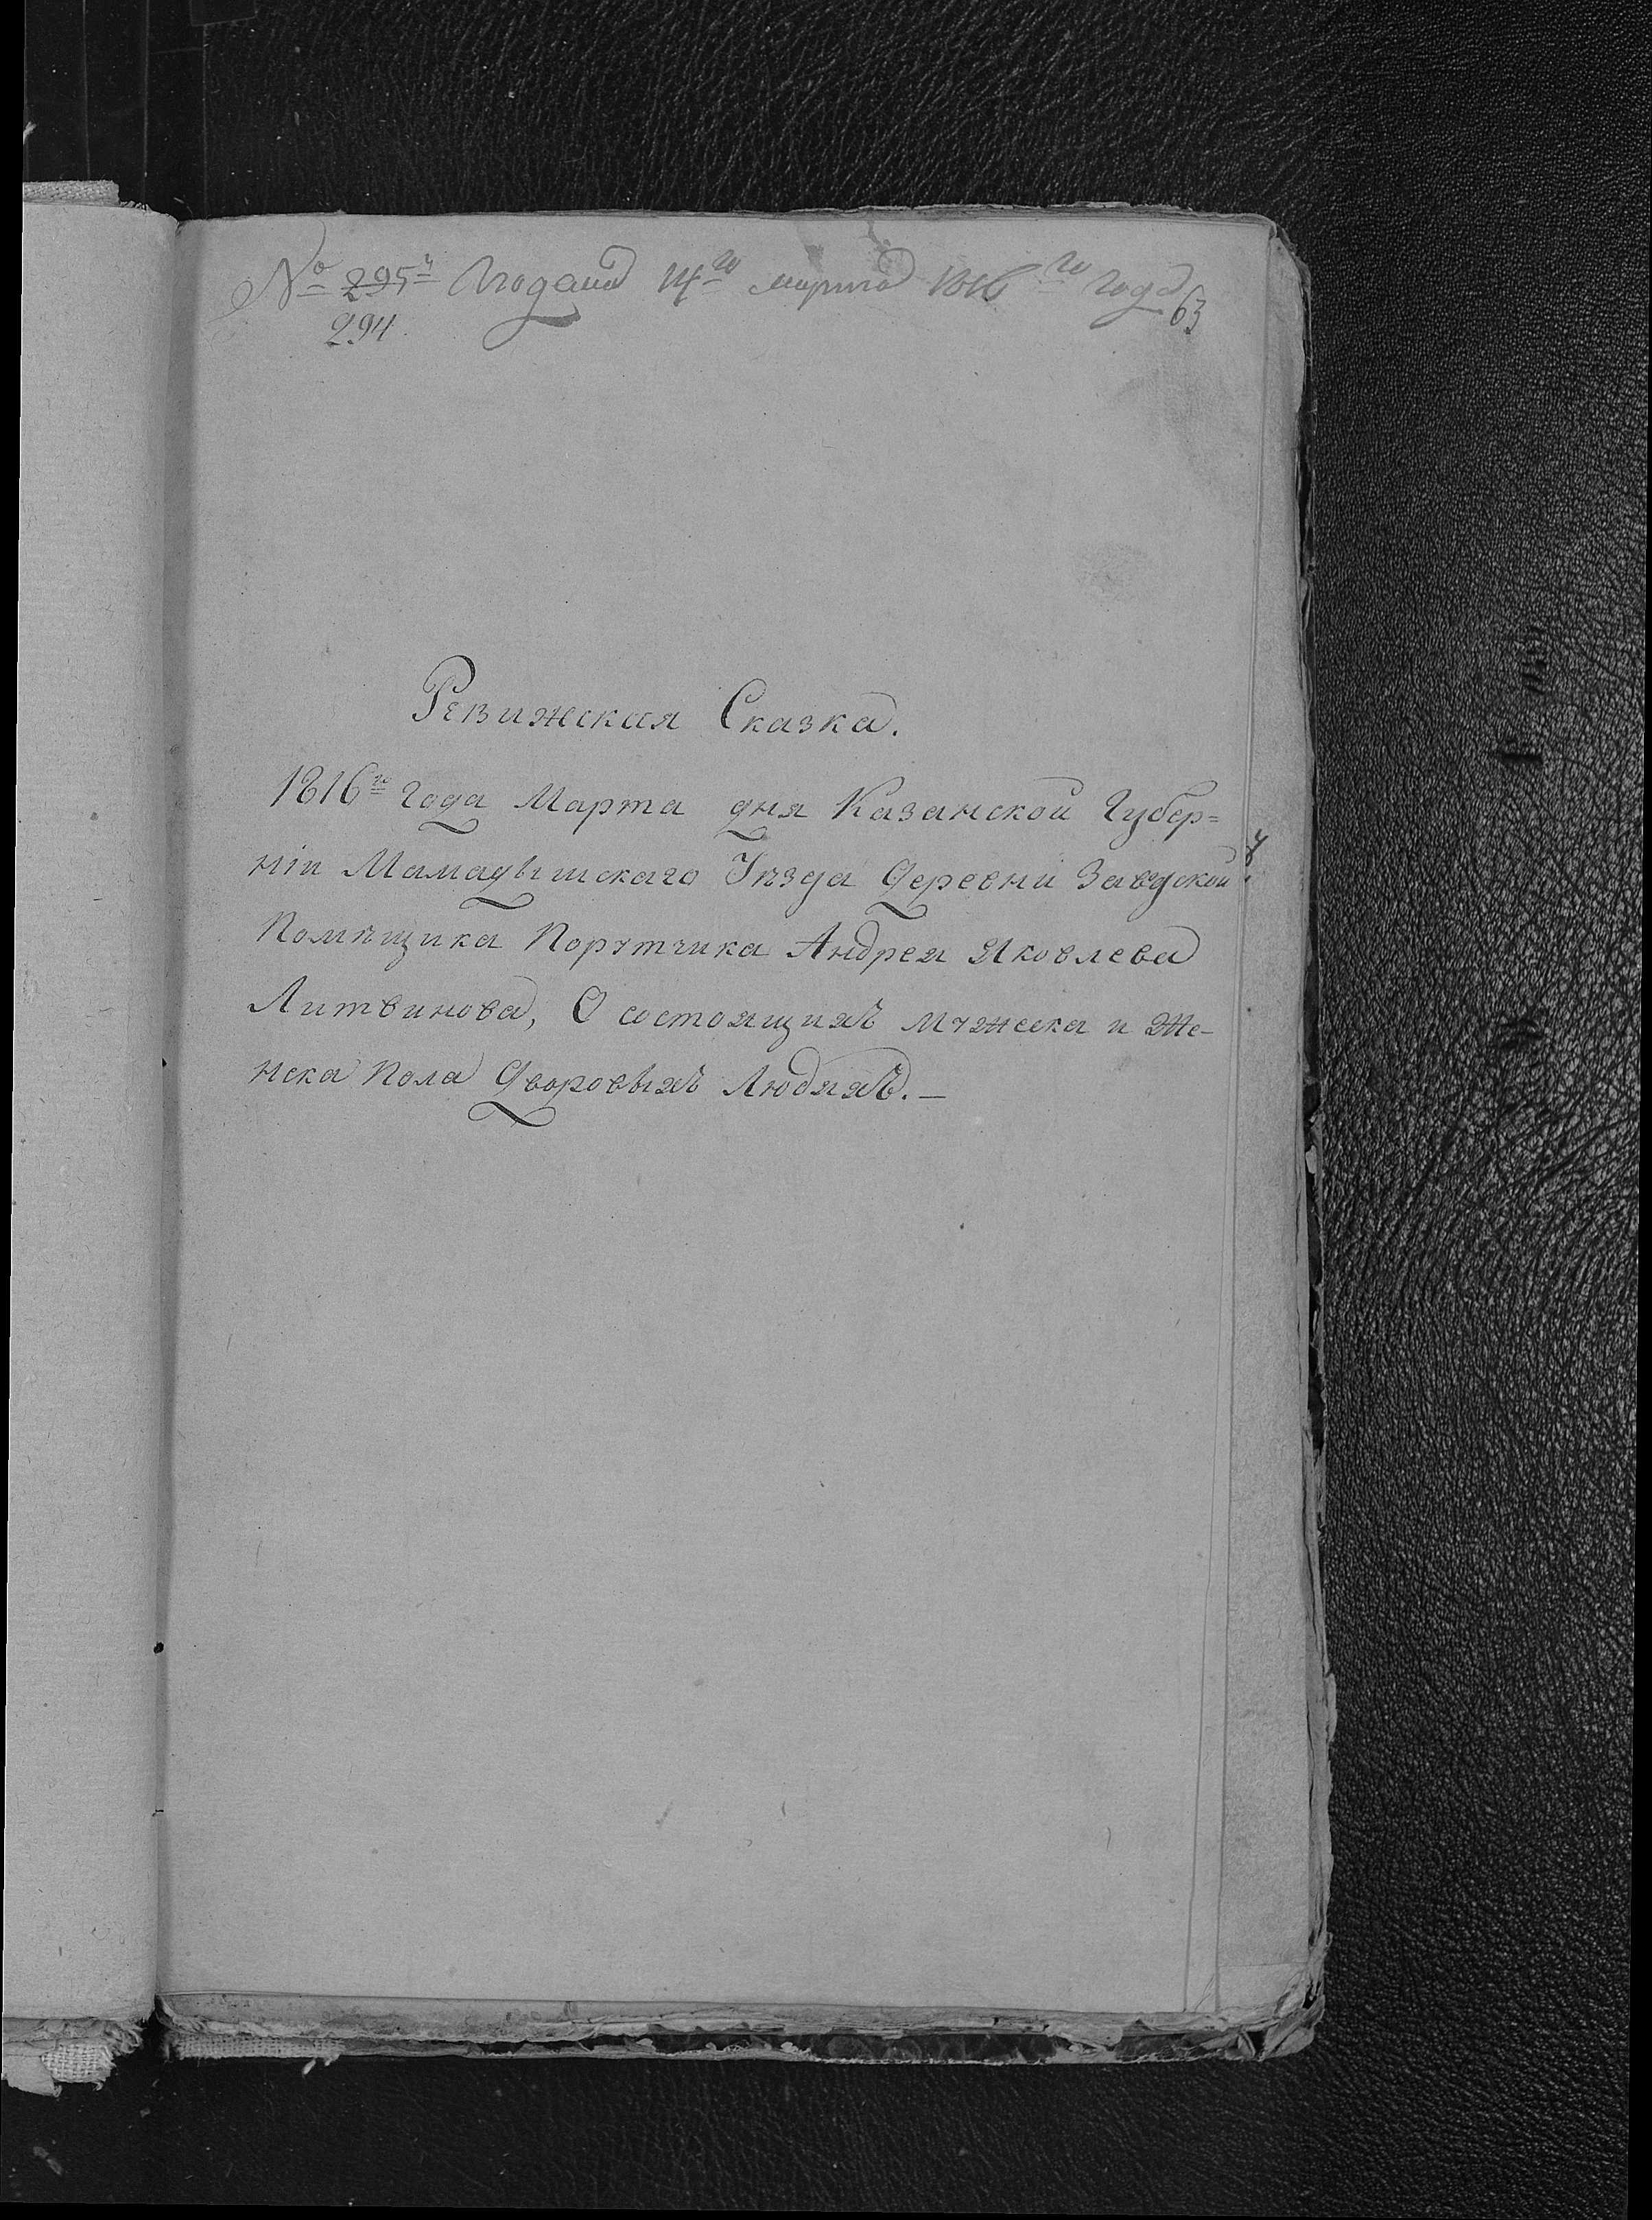 № 295й Подана 14го марта 1816го года
63
294.
Ревижская Сказка.
1816го года Марта дня Казанской Губер=
нiи Мамадышскаго Уѣзда Деревни Заводской
Помѣщика Порутчика Андрея Яковлева
Литвинова, О состоящихъ мужеска и Же-
нска пола Дворовыхъ Людяхъ. —